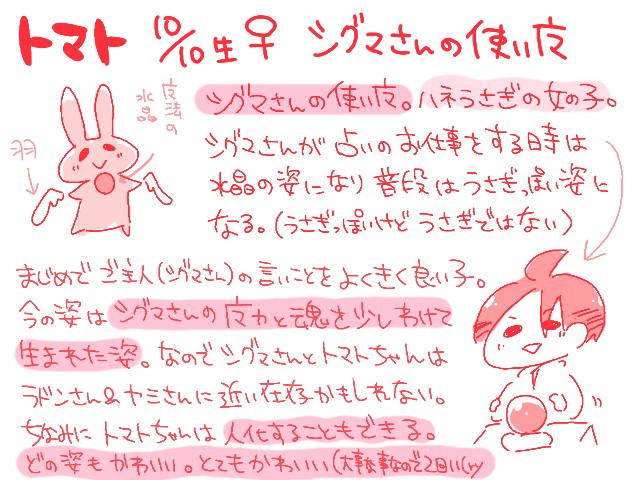 トマト 10/10生 ♀ シグマさんの使い魔
魔法の
水晶
羽
シグマさんの使い魔。ハネうさぎの女の子。
シグマさんが占いのお仕事をする時は
水晶の姿になり普段はうさぎっぽい姿に
なる。(うさぎっぽいけどうさぎではない)
まじめでご主人(シグマさん)の言いことをよくきく良い子。
今の姿はシグマさんの魔力と魂を少しわけて
生まれた姿。なのでシグマさんとトマトちゃんは
ラドンさん&ヤミさんに近い存在かもしれない。
ちなみにトマトちゃんは人化することもできる。
どの姿もかわいい。とてもかわいい(大事な事なので2回い(ry